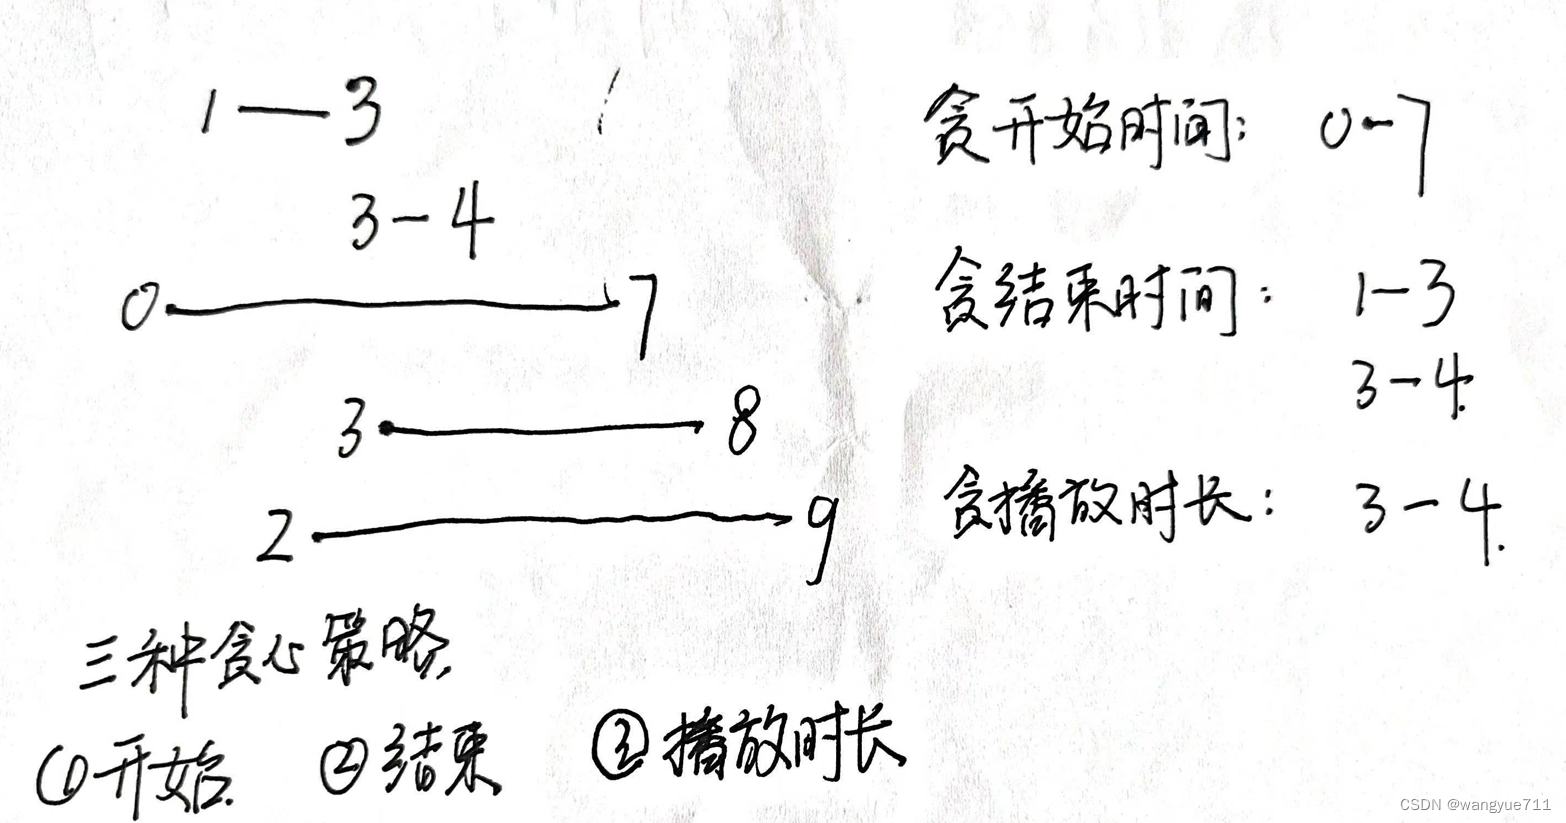 1—3
3-4
0—7
3—8
2—9
贪开始时间: 0-7
贪结束时间: 1-3
3-4.
贪播放时长: 3-4.
三种贪心策略.
①开始. ②结束 ③播放时长
CSDN @wangyue711